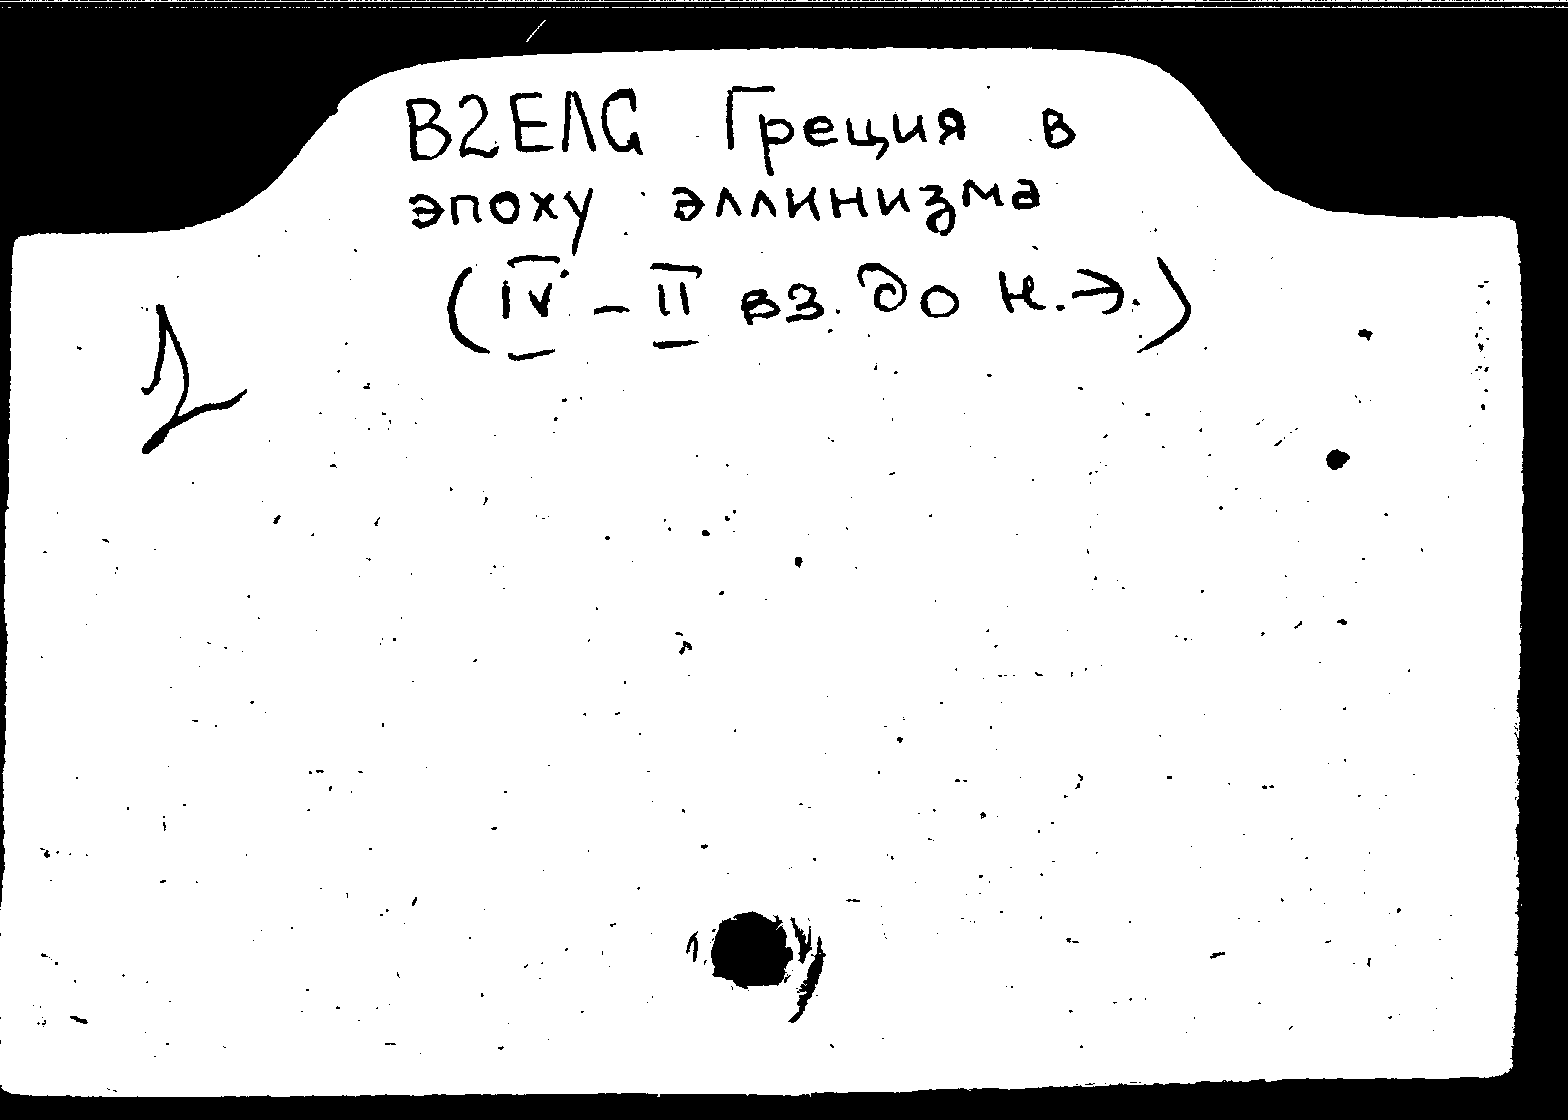 В2ЕЛG Греция в
эпоху эллинизма
(IV – II вв. до н.э.)
1